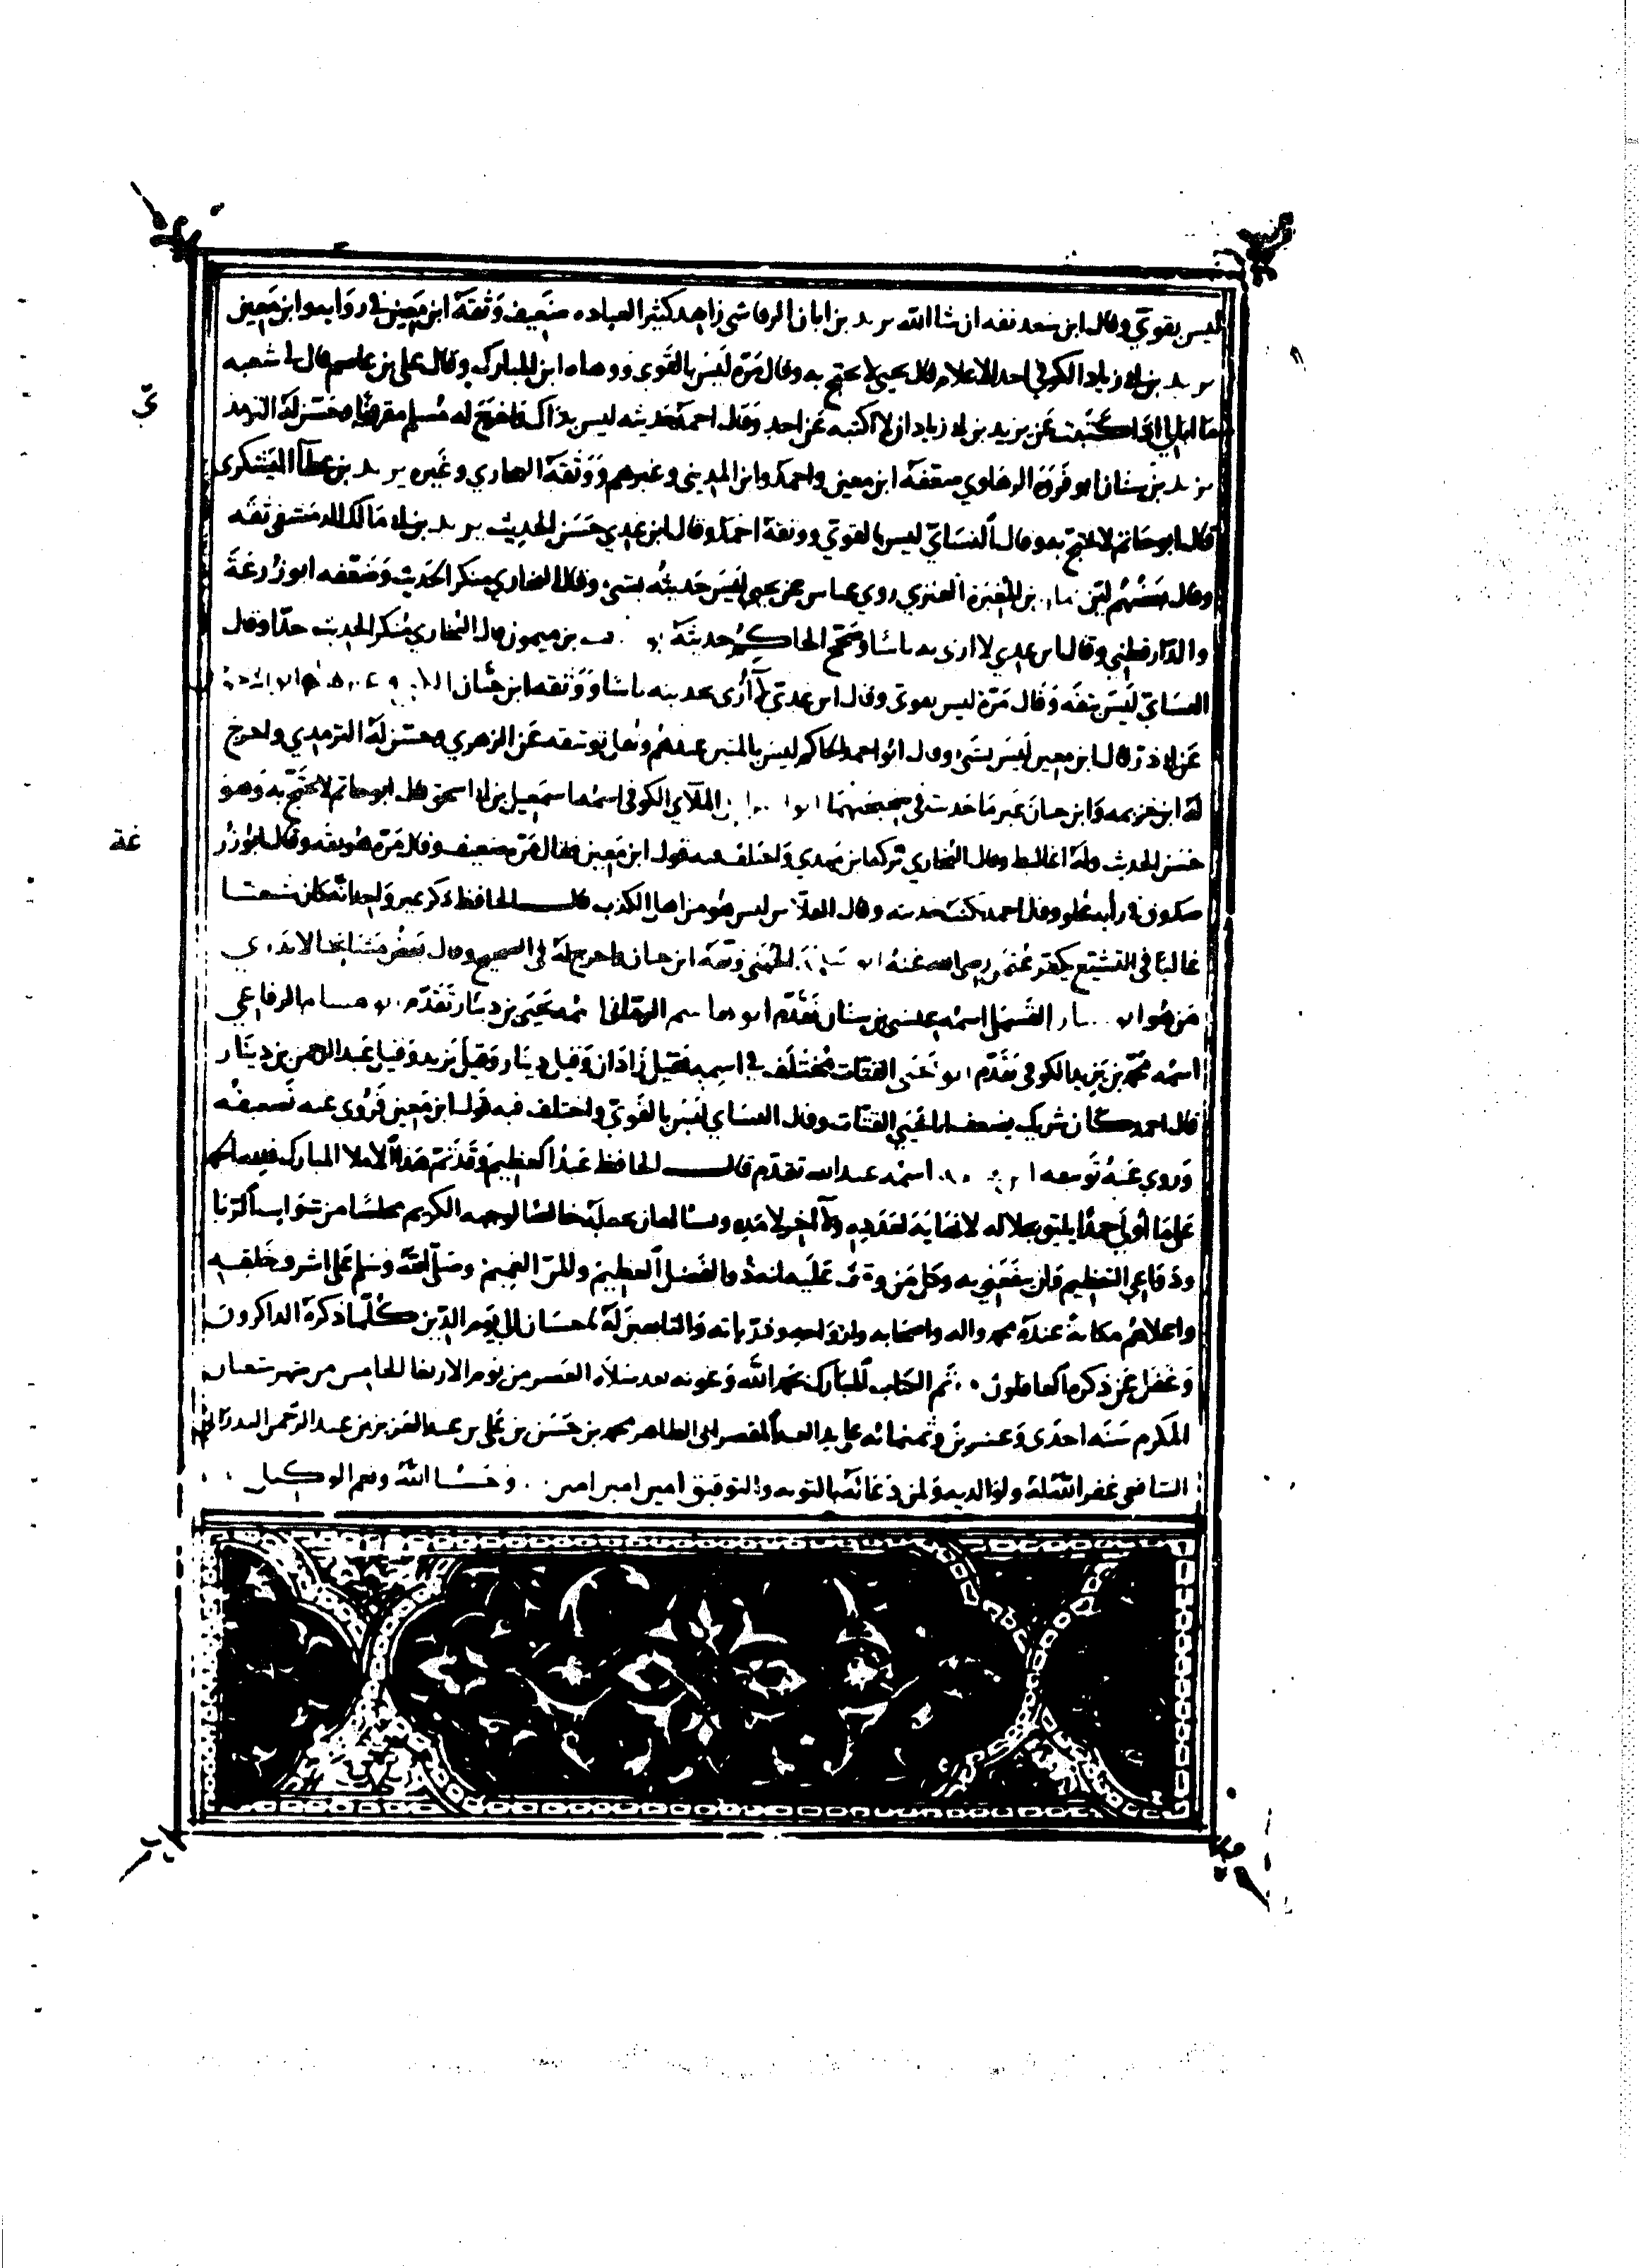 ليس بقوي وقال ابن سعد ثقه ان شا الله يزيد بن ابان الرقاشي زاهد كثير العباده ضعيف وثقه ابن معين في روايه وابن معين
يزيد بن ابي زياد الكوفي احد الاعلام قال يحيى لا يحتج به وقال مرة ليس بالقوي ووهاه ابن المبارك وقال علي بن عاصم قال لي شعبه
ما ابالي اذا كتبت عن يزيد بن ابي زياد ان لا اكتبه عن احد وقال احمد حديثه ليس بذاك واخرج له مسلم مقرونا وحسن له الترمذ
ي
يزيد بن سنان ابو فروة الرهاوي ضعفه ابن معين واحمد وابن المديني وغيرهم ووثقه البخاري وغيره يزيد بن عطا اليشكري
قال ابو حاتم لا يحتج به وقال النسائي ليس بالقوي ووثقه احمد وقال ابن عدي حسن الحديث يزيد بن ابي مالك الدمشقي ثقه
وقال بعضهم لين يمان بن المغيرة العنزي روي عباس عن يحيى ليس حديثه بشئ وقال البخاري منكر الحديث وضعفه ابو زرعة
والدارقطني وقال ابن عدي لا ارى به باسا وصحح الحاكم حديثه يوسف بن ميمون قال البخاري منكر الحديث جدا وقال
النسائي ليس بثقه وقال مرة ليس بقوي وقال ابن عدي لا أرى بحديثه باسا ووثقه ابن حبان
عن ابي ذر قال ابن معين ليس بشئ وقال ابو احمد الحاكم ليس بالمتين عندهم وثقه عن الزهري وحسن له الترمذي واخرج
له ابن خزيمه وابن حبان غير ما حديث في صحيحهما الملائي الكوفي اسمه اسمعيل بن ابي اسحق قال ابو حاتم لا يحتج به وهو
حسن الحديث وله اغاليط وقال البخاري تركه ابن مهدي واختلف فيه قول ابن معين فقال مرة ضعيف وقال مرة هو ثقه وقال ابو زر
عة
صدوق في رأيه غلو وقال احمد يكتب حديثه وقال الفلاس ليس هو من اهل الكذب قال الحافظ ذكر غير واحد انه كان شيعيا
غاليا في التشيع يكفر عثمن رضي الله عنه الجهني وثقه ابن حبان واخرج له في الصحيح وقال بعض مشائخنا لا ندري
من هو ابو سنان القسملي اسمه عيسى بن سنان تقدم ابو هاسم الرماني اسمه يحيى بن دينار تقدم ابو هسام الرفاعي
اسمه محمد بن يزيد الكوفي تقدم ابو يحيى القتات مختلف في اسمه فقيل زاذان وقيل دينار وقيل يزيد وقيل عبد الرحمن بن دينار
قال احمد كان شريك يضعف ابا يحيى القتات وقال النسائي ليس بالقوي واختلف فيه قول ابن معين فروى عنه تضعيفه
وروي عنه توثيقه اسمه عبد الله تقدم قال الحافظ عبد العظيم وقد تم هذا الاملا المبارك فلله الحمد
على ما أولى حمدا يليق بجلاله لا نهاية لعدده ولا آخر لامده ونسأله ان يجعله خالصا لوجهه الكريم مخلصا من شوائب الريا
ودواعي التعظيم وان ينفعني به وكل من وقف عليه انه ذو الفضل العظيم والمن الجسيم وصلى الله وسلم على اشرف خلقه
واعلاهم مكانة عنده محمد واله واصحابه وازواجه وذرياته والتابعين له باحسان الى يوم الدين كلما ذكره الذاكرون
وغفل عن ذكره الغافلون تم الكتاب المبارك بحمد الله وعونه بعد صلاة العصر من يوم الاربعا الخامس من شهر شعبان
المكرم سنه احدى وعشرين وثمنمائه على يد العبد المقصر ابي الطاهر محمد بن حسن بن علي بن عبد العزيز بن عبد الرحمن البدراني
الشافعي غفر الله له ولوالديه ولمن دعا لهم بالتوبه والتوفيق امين امين امين وحسبنا الله ونعم الوكيل